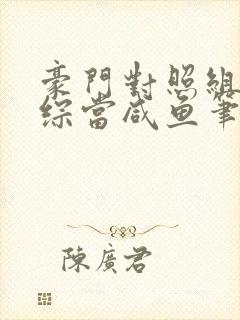 豪門對照組
綜當咸魚筆
陳廣君